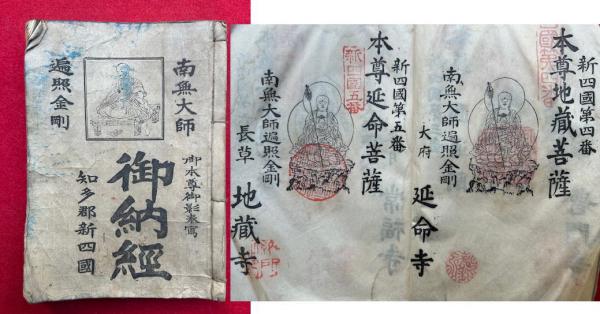 南無大師
遍照金剛
御本尊御影奉寫
御納經
知多郡新四國
新四國第四番
本尊地藏菩薩
南無大師遍照金剛
大府 延命寺
新四國第五番
本尊延命菩薩
新四國五番
南無大師遍照金剛
長草 地藏寺